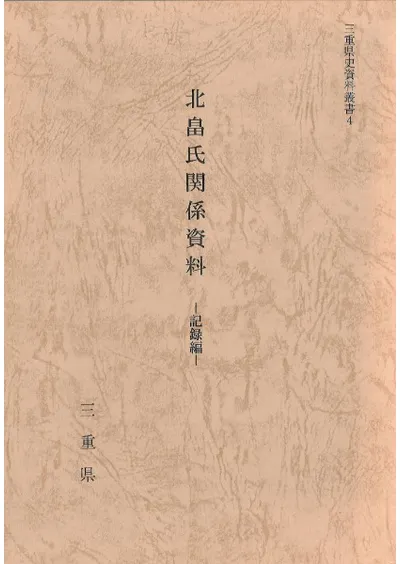 三重県史資料叢書4
北畠氏関係資料
―記録編―
三重県